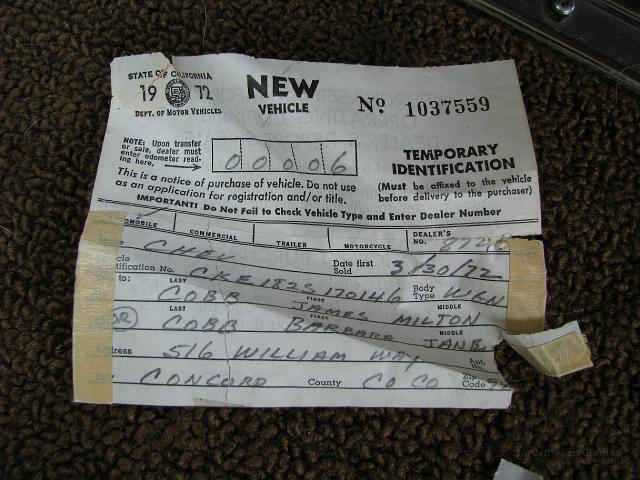 STATE OF CALIFORNIA
19 72
DEPT. OF MOTOR VEHICLES
NEW
VEHICLE
No 1037559
NOTE: Upon transfer
or sale, dealer must
enter odometer read-
ing here.
00006
TEMPORARY
IDENTIFICATION
(Must be affixed to the vehicle
before delivery to the purchaser)
This is a notice of purchase of vehicle. Do not use
as an application for registration and/or title.
IMPORTANT! Do Not Fail to Check Vehicle Type and Enter Dealer Number
OMOBILE COMMERCIAL TRAILER MOTORCYCLE DEALER'S
NO.
CHEV Date first
Sold 3/30/72
cle
tification No. CKE182S170146 Body
Type WGN
to: LAST FIRST MIDDLE
COBB JAMES MILTON
OR LAST FIRST MIDDLE
COBB BARBARA JANE
ress 516 WILLIAM WAY Apt.
No.
CONCORD County CO CO Zip
Code